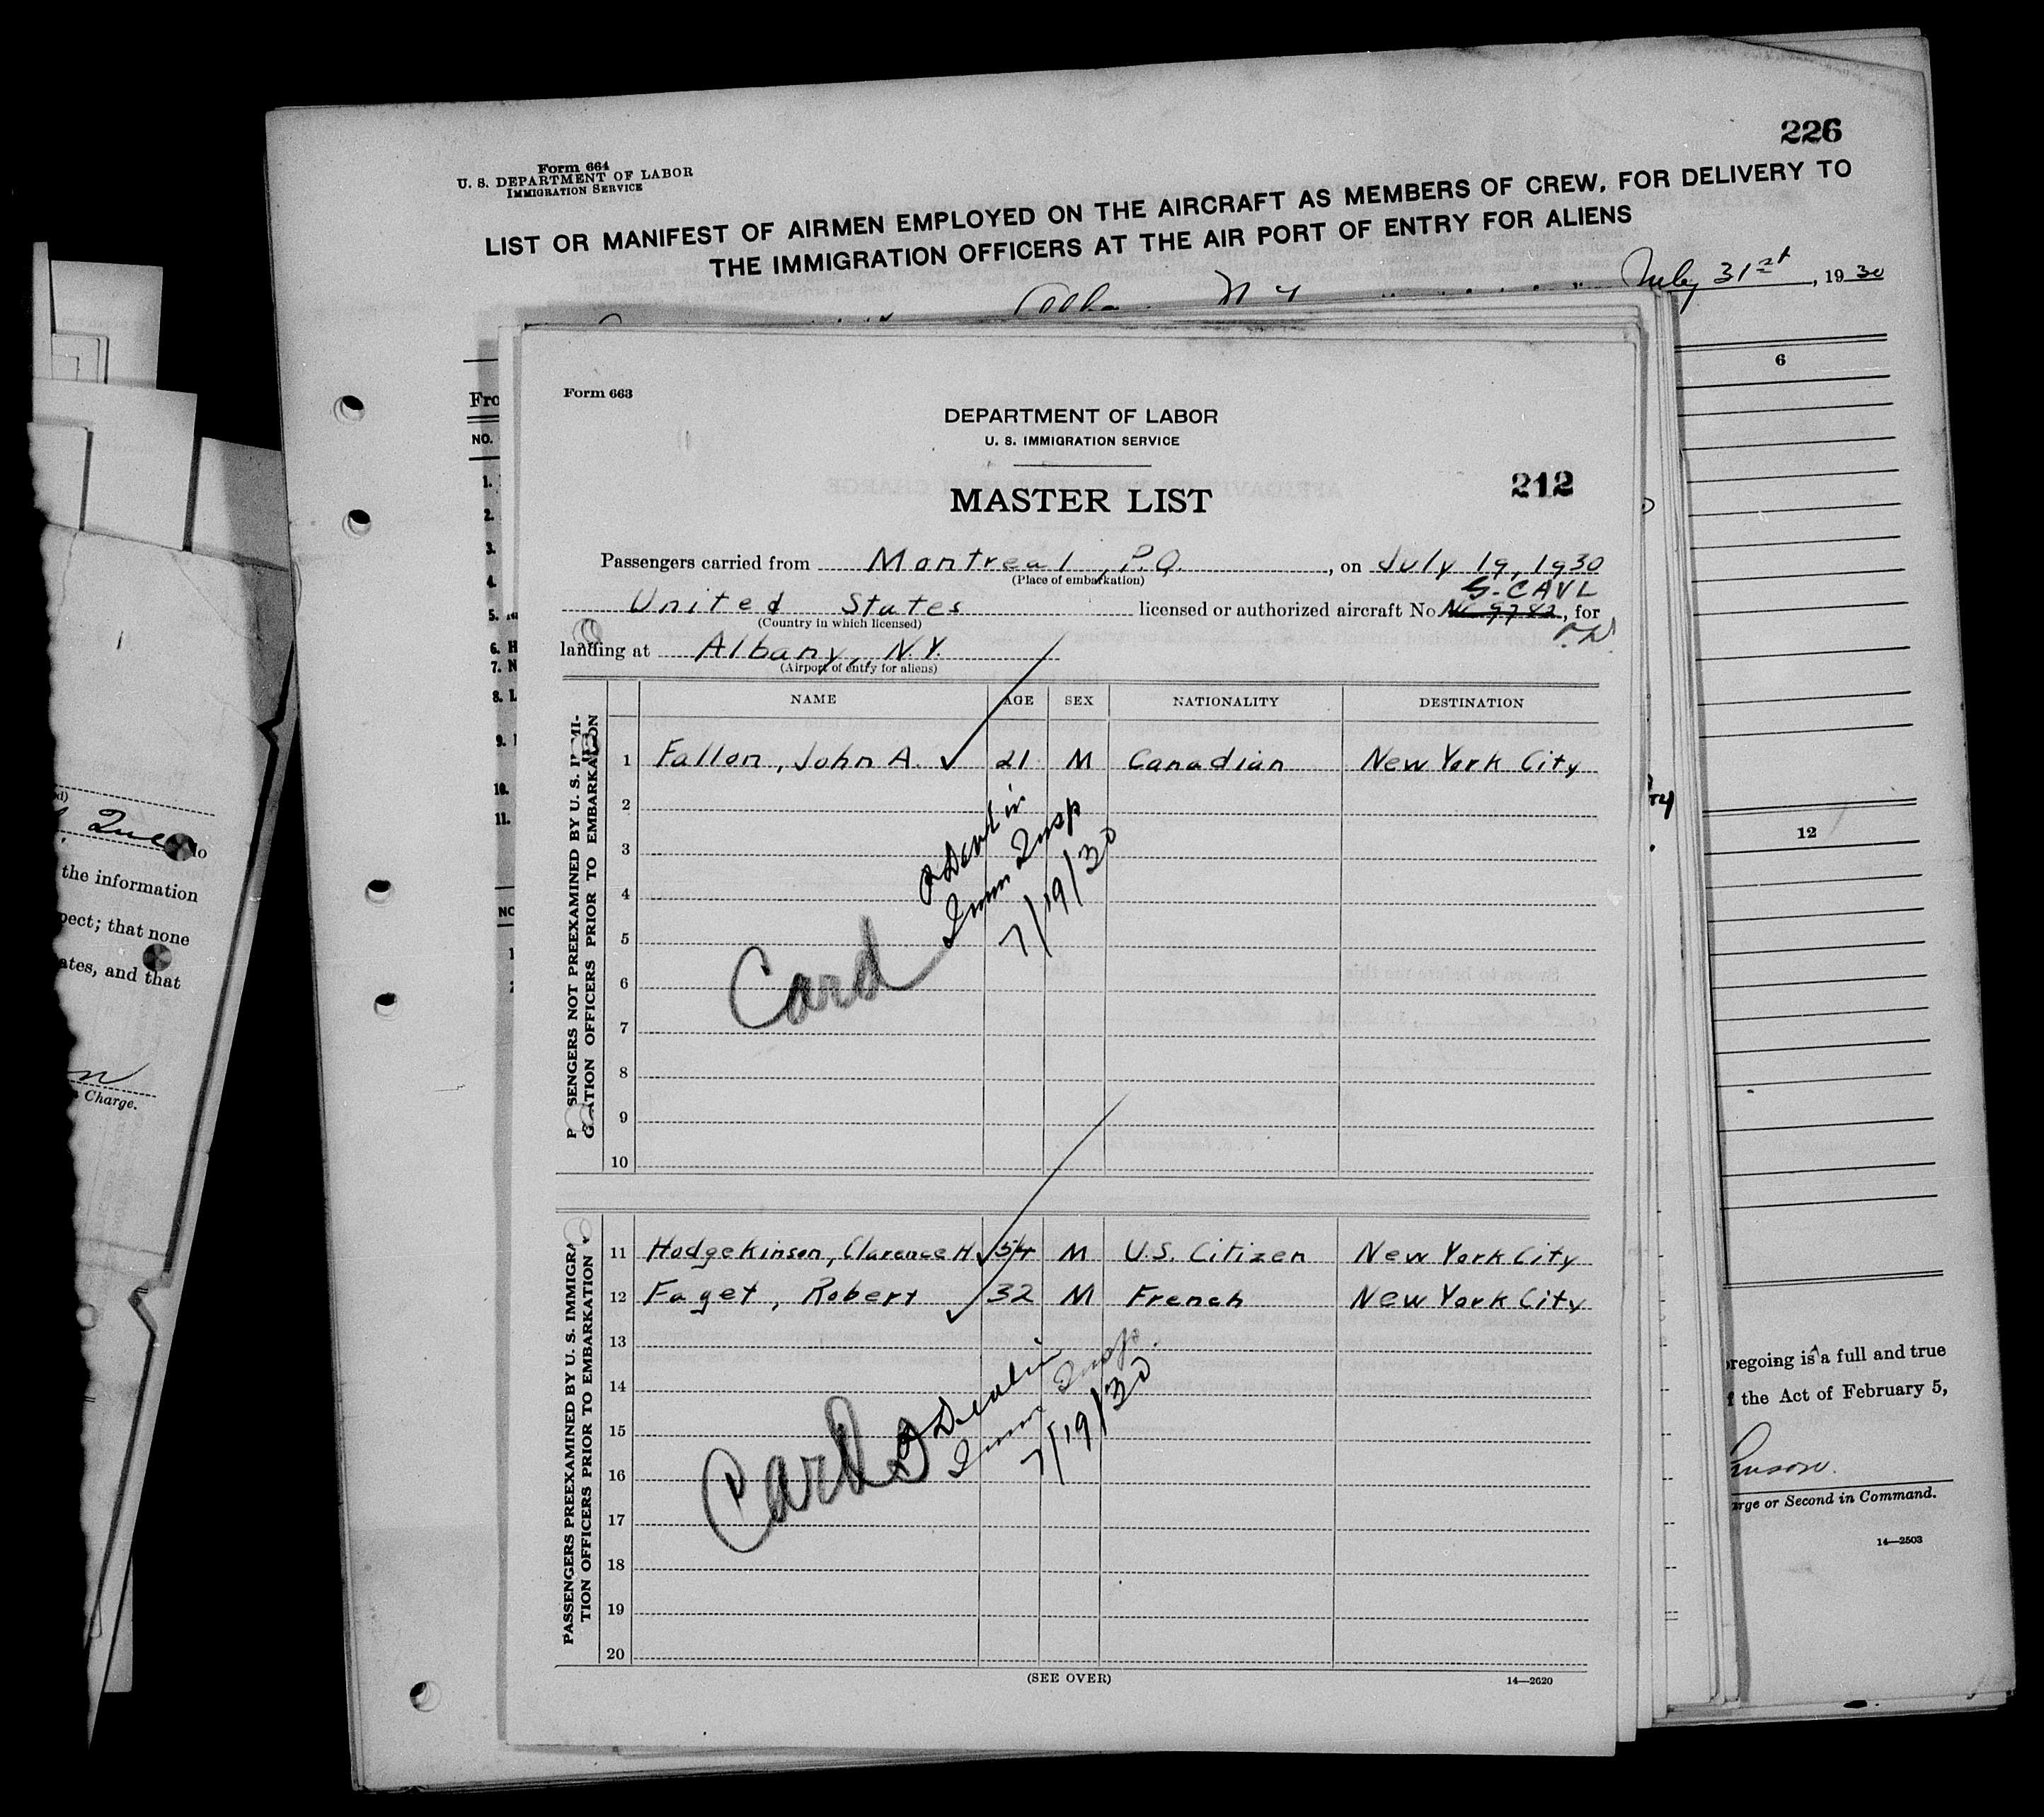 226
Form 664
U. S. DEPARTMENT OF LABOR
IMMIGRATION SERVICE
LIST OR MANIFEST OF AIRMEN EMPLOYED ON THE AIRCRAFT AS MEMBERS OF CREW, FOR DELIVERY TO
THE IMMIGRATION OFFICERS AT THE AIR PORT OF ENTRY FOR ALIENS
July 31st, 1930
Fro
NO.
1.
2.
3.
4.
5.
6. H
7. N
8. L
9.
10.
11.
NO
6
12
Form 663
DEPARTMENT OF LABOR
U. S. IMMIGRATION SERVICE
212
MASTER LIST
Passengers carried from Montreal, P.Q. , on July 19, 1930
(Place of embarkation)
G-CAVL
United States licensed or authorized aircraft No NC 9782, for
(Country in which licensed)
landing at Albany, N.Y.
(Airport of entry for aliens)
NAME AGE SEX NATIONALITY DESTINATION
PASSENGERS NOT PREEXAMINED BY U. S. IMMI-
GRATION OFFICERS PRIOR TO EMBARKATION
1 Fallon, John A. ✓ 21 M Canadian New York City
2
3
4
5
6
7
8
9
10
Card
Imm Insp
7/19/30
PASSENGERS PREEXAMINED BY U. S. IMMIGRA
TION OFFICERS PRIOR TO EMBARKATION
11 Hodgekinson, Clarence H ✓ 54 M U.S. Citizen New York City
12 Faget, Robert ✓ 32 M French New York City
13
14
15
16
17
18
19
20
Card
Imm Insp.
7/19/30
(SEE OVER) 14—2620
Que do
the information
pect; that none
ates, and that
Charge.
oregoing is a full and true
f the Act of February 5,
arge or Second in Command.
14—2503